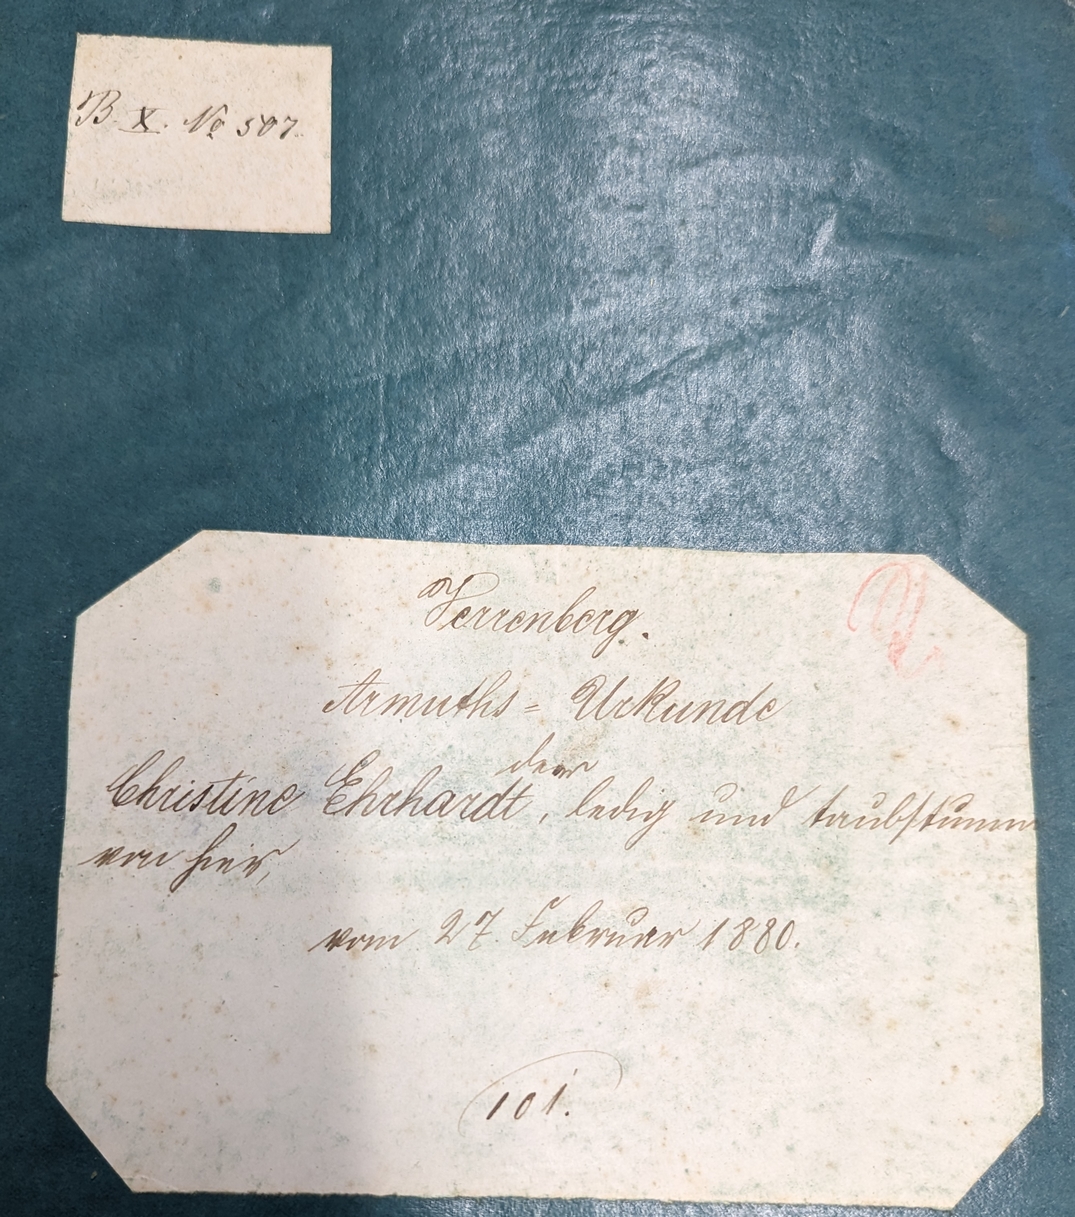 B. X. No 507.
Verrenberg.
Armuths = Urkunde
der
Christine Ehrhardt, ledig und taubstumm
von hier,
vom 27. Februar 1880.
101.